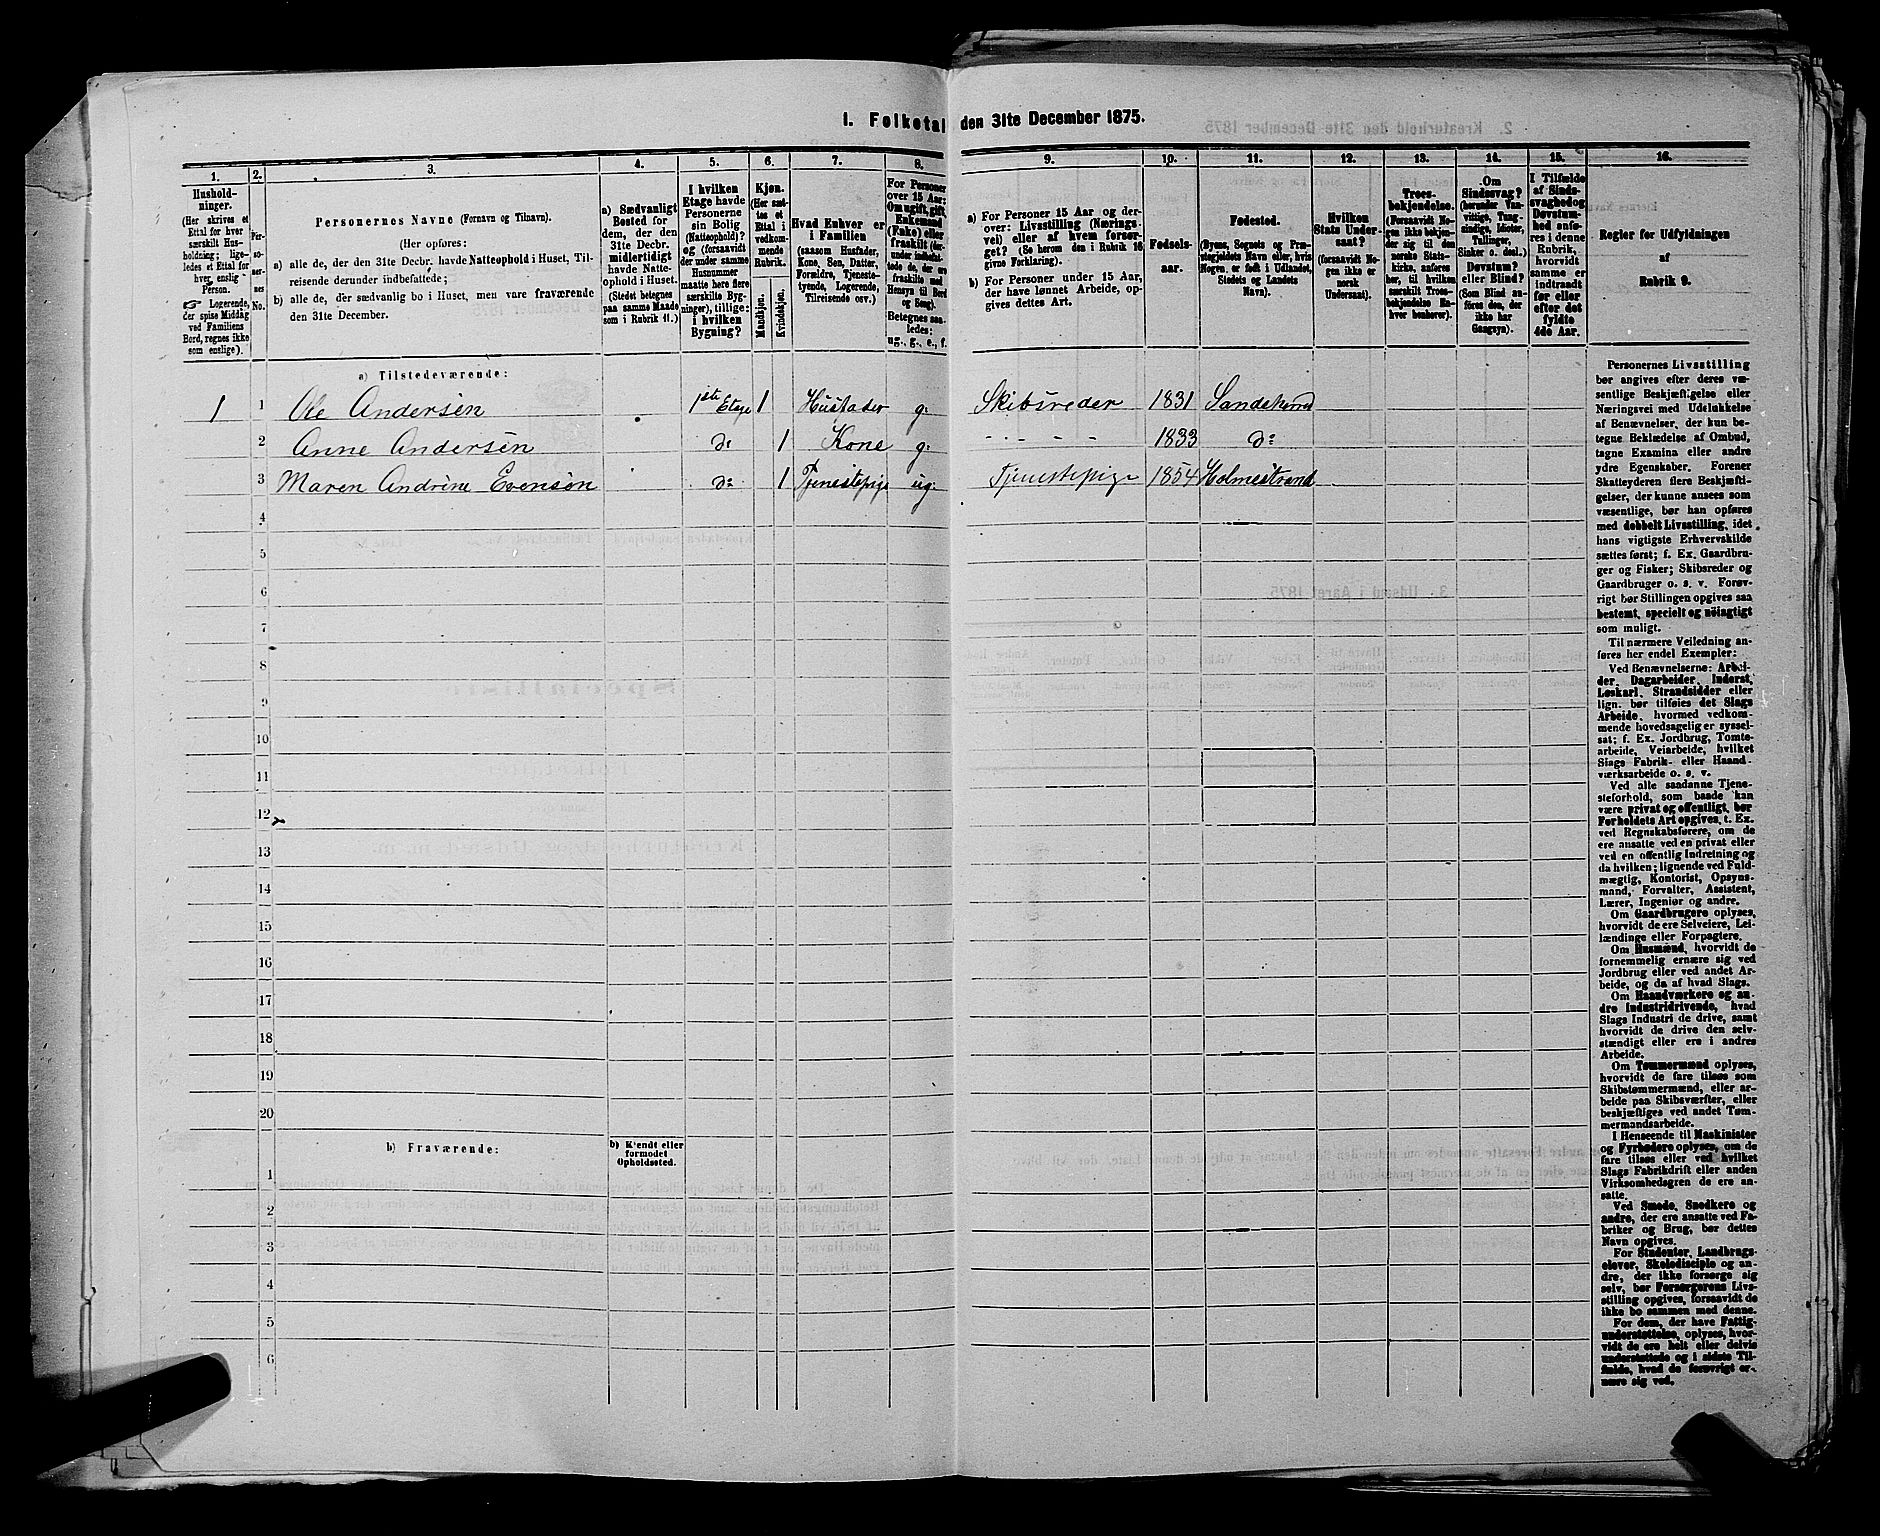 1. Folketal den 31te December 1875.
1. 2. 3. 4. 5. 6. 7. 8. 9. 10. 11. 12. 13. 14. 15. 16.
Hushold-
ninger.
(Her skrives et
Ettal for hver
særskilt Hus-
holdning; lige-
ledes et Ettal for
hver enslig
Person.
☞ Logerende,
der spise Middag
ved Familiens
Bord, regnes ikke
som enslige).
Per-
so-
ner-
nes
No.
Personernes Navne (Fornavn og Tilnavn).
(Her opføres:
a) alle de, der den 31te Decbr. havde Natteophold i Huset, Til-
reisende derunder indbefattede;
b) alle de, der sædvanlig bo i Huset, men vare fraværende
den 31te December.
a) Sædvanligt
Bosted for
dem, der den
31te Decbr.
midlertidigt
havde Natte-
ophold i Huset.
(Stedet betegnes
paa samme Maade
som i Rubrik 11.)
I hvilken
Etage havde
Personerne
sin Bolig
(Natteophold)?
og (forsaavidt
der under samme
Husnummer
maatte høre flere
særskilte Byg-
ninger), tillige:
i hvilken
Bygning?
Kjøn.
(Her sæt-
tes et
Ettal i
vedkom-
mende
Rubrik.
Mandkjøn.
Kvindekjøn.
Hvad Enhver er
i Familien
(saasom Husfader,
Kone, Søn, Datter,
Forældre, Tjeneste-
tyende, Logerende,
Tilreisende osv.)
For Personer
over 15 Aar:
Om ugift, gift,
Enkemand
(Enke) eller
fraskilt (der-
under indbefat-
tede de, der ere
fraskilte med
Hensyn til Bord
og Seng).
Betegnes saa-
ledes:
ug., g., e., f.
a) For Personer 15 Aar og der-
over: Livsstilling (Nærings-
vei) eller af hvem forsør-
get? (Se herom den i Rubrik 16
givne Forklaring).
b) For Personer under 15 Aar,
der have lønnet Arbeide, op-
gives dettes Art.
Fødsels-
aar.
Fødested.
(Byens, Sognets og Præ-
stegjeldets Navn eller, hvis
Nogen er født i Udlandet,
Stedets og Landets
Navn).
Hvilken
Stats Under-
saat?
(forsaavidt No-
gen ikke er
norsk
Undersaat).
Troes-
bekjendelse.
(Forsaavidt No-
gen ikke bekjen-
der sig til den
norske Stats-
kirke, anføres
her, til hvilken
særskilt Troes-
bekjendelse En-
hver henhører).
Om
Sindssvag?
(herunder Van-
vittige, Tung-
sindige, Idioter,
Tullinger,
Sinker o. desl.).
Døvstum?
eller Blind?
(Som Blind an-
føres den, der
ikke har
Gangsyn).
I Tilfælde
af Sinds-
svaghed og
Døvstum-
hed anfø-
res i denne
Rubrik,
hvorvidt
samme er
indtraadt
før eller
efter det
fyldte
4de Aar.
Regler for Udfyldningen
af
Rubrik 9.
a) Tilstedeværende:
1 1 Ole Andersen 1ste Etage 1 Husfader g. Skibsreder 1831 Sandeherred
2 Anne Andersen do 1 Kone g. - - - - 1833 do
3 Maren Andrine Evensøn do 1 Tjenestepige ug. Tjenestepige 1854 Holmestrand
4
5
6
7
8
9
10
11
12
13
14
15
16
17
18
19
20
b) Fraværende:
b) Kjendt eller
formodet
Opholdssted.
1
2
3
4
5
6
Personernes Livsstilling
bør angives efter deres væ-
sentlige Beskjæftigelse eller
Næringsvei med Udelukkelse
af Benævnelser, der kun be-
tegne Beklædelse af Ombud,
tagne Examina eller andre
ydre Egenskaber. Forener
Skatteyderen flere Beskjæfti-
gelser, der kunne ansees som
væsentlige, bør han opføres
med dobbelt Livsstilling, idet
hans vigtigste Erhvervskilde
sættes først; f. Ex. Gaardbru-
ger og Fisker; Skibsreder og
Gaardbruger o. s. v. Forøv-
rigt bør Stillingen opgives saa
bestemt, specielt og nøiagtigt
som muligt.
Til nærmere Veiledning an-
føres her endel Exempler:
Ved Benævnelserne: Arbei-
der, Dagarbeider, Inderst,
Løskarl, Strandsidder eller
lign. bør tilføies det Slags
Arbeide, hvormed vedkom-
mende hovedsagelig er syssel-
sat; f. Ex. Jordbrug, Tomte-
arbeide, Veiarbeide, hvilket
Slags Fabrik- eller Haand-
værksarbeide o. s. v.
Ved alle saadanne Tjene-
steforhold, som baade kan
være privat og offentligt, bør
Forholdets Art opgives, t. Ex.
ved Regnskabsførere, om de
ere ansatte ved en privat eller
ved en offentlig Indretning og
da hvilken; lignende ved Fuld-
mægtig, Kontorist, Opsyns-
mand, Forvalter, Assistent,
Lærer, Ingeniør og andre.
Om Gaardbrugere oplyses,
hvorvidt de ere Selveiere, Lei-
lændinge eller Forpagtere.
Om Husmænd, hvorvidt de
fornemmelig ernære sig ved
Jordbrug eller ved andet Ar-
beide, og da af hvad Slags.
Om Haandværkere og an-
dre Industridrivende, hvad
Slags Industri de drive, samt
hvorvidt de drive den selv-
stændigt eller ere i andres
Arbeide.
Om Tømmermænd oplyses,
hvorvidt de fare tilsøs som
Skibstømmermænd, eller ar-
beide paa Skibsværfter, eller
beskjæftiges ved andet Tøm-
mermandsarbeide.
I Henseende til Maskinister
og Fyrbødere oplyses, om de
fare tilsøs eller ved hvilket
Slags Fabrikdrift eller anden
Virksomhedsgren de ere an-
satte.
Ved Smede, Snedkere og
andre, der ere ansatte ved Fa-
briker og Brug, bør dettes
Navn opgives.
For Studenter, Landbrugs-
elever, Skoledisciple og an-
dre, der ikke forsørge sig
selv, bør Forsørgerens Livs-
stilling opgives, forsaavidt de
ikke bo sammen med denne.
For dem, der have Fattig-
understøttelse, oplyses, hvor-
vidt de ere helt eller delvis
understøttede og i sidste Til-
fælde, hvad de forøvrigt er-
nære sig ved.